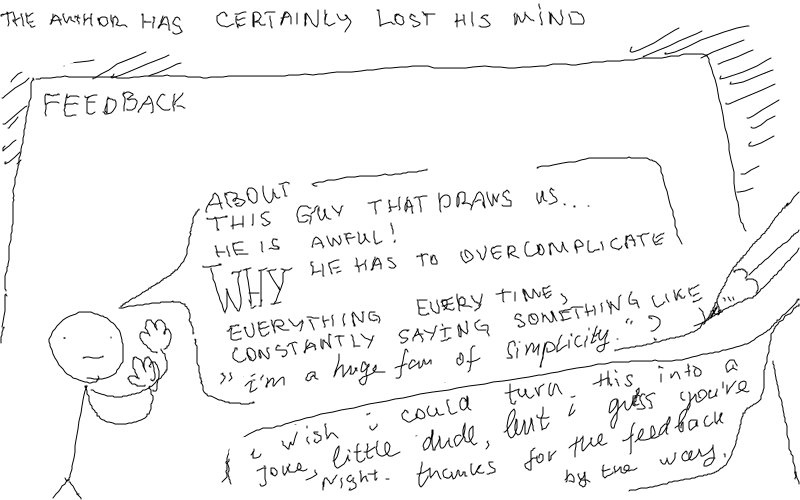 THE AUTHOR HAS CERTAINLY LOST HIS MIND
FEEDBACK
ABOUT
THIS GUY THAT DRAWS US...
HE IS AWFUL!
WHY HE HAS TO OVERCOMPLICATE
EVERYTHING EVERY TIME,
CONSTANTLY SAYING SOMETHING LIKE
"i'm a huge fan of simplicity."?
i wish i could turn this into a
joke, little dude, but i guess you're
right. thanks for the feedback
by the way.